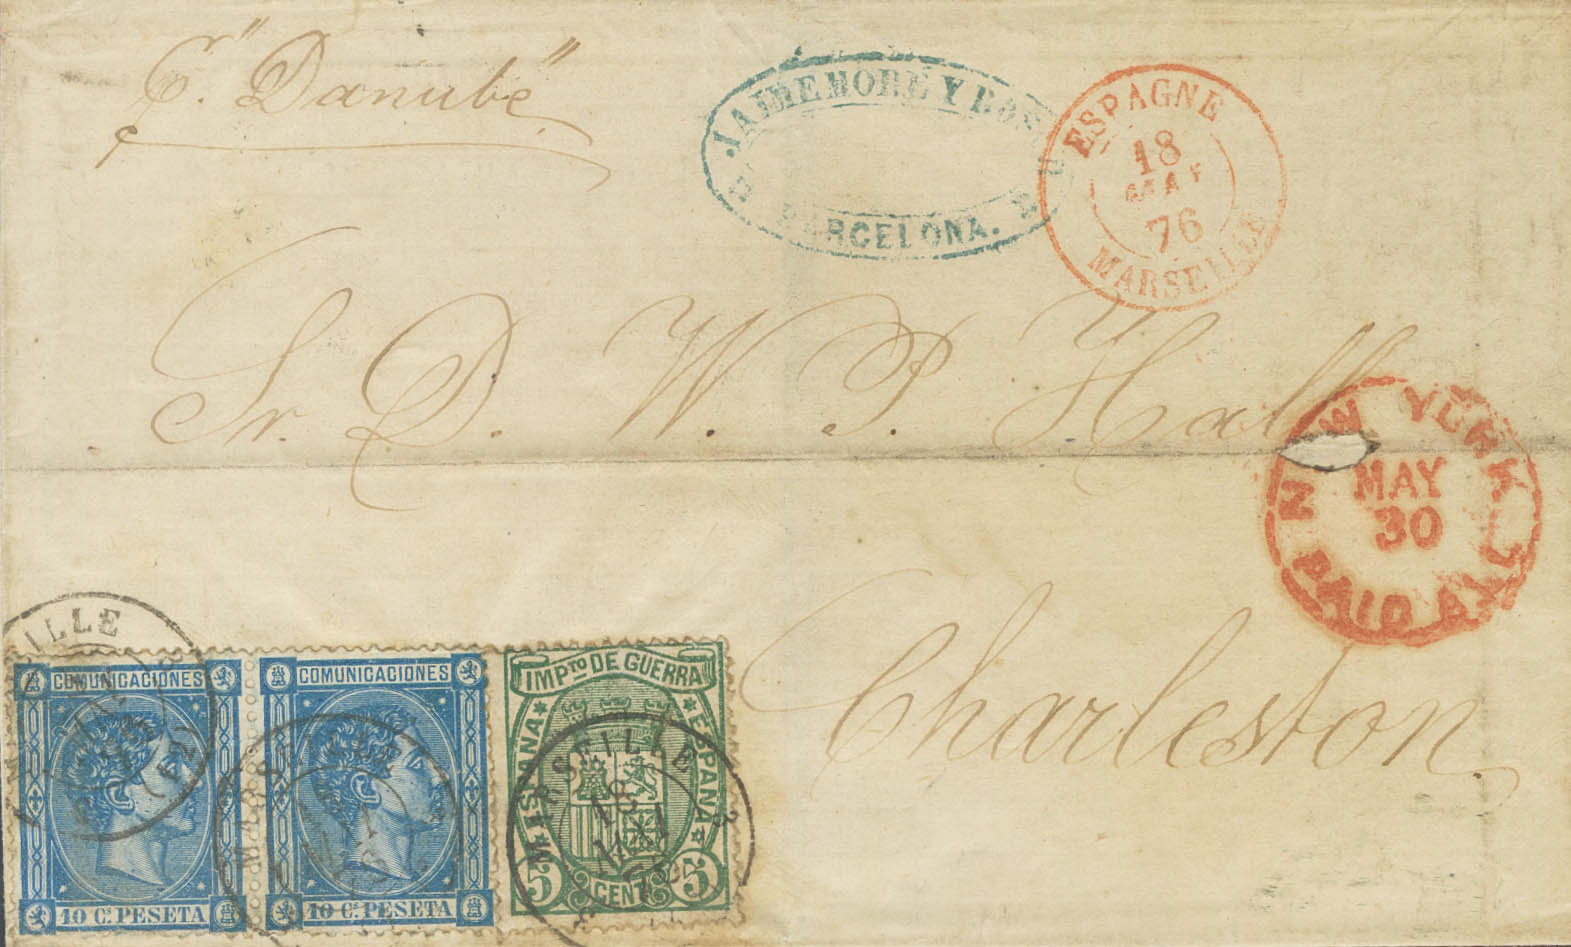 p. "Danube"
JAIME MORÉ Y BOS
BARCELONA.
ESPAGNE
18
MAI
76
MARSEILLE
Sr. D. W. P. Hall
NEW YORK
MAY
30
PAID ALL
Charleston
MARSEILLE
COMUNICACIONES
10 C.s PESETA
MARSEILLE
COMUNICACIONES
10 C.s PESETA
IMP.TO DE GUERRA
ESPAÑA
ESPAÑA
MARSEILLE
18
MAI
76
5 CENT.S 5